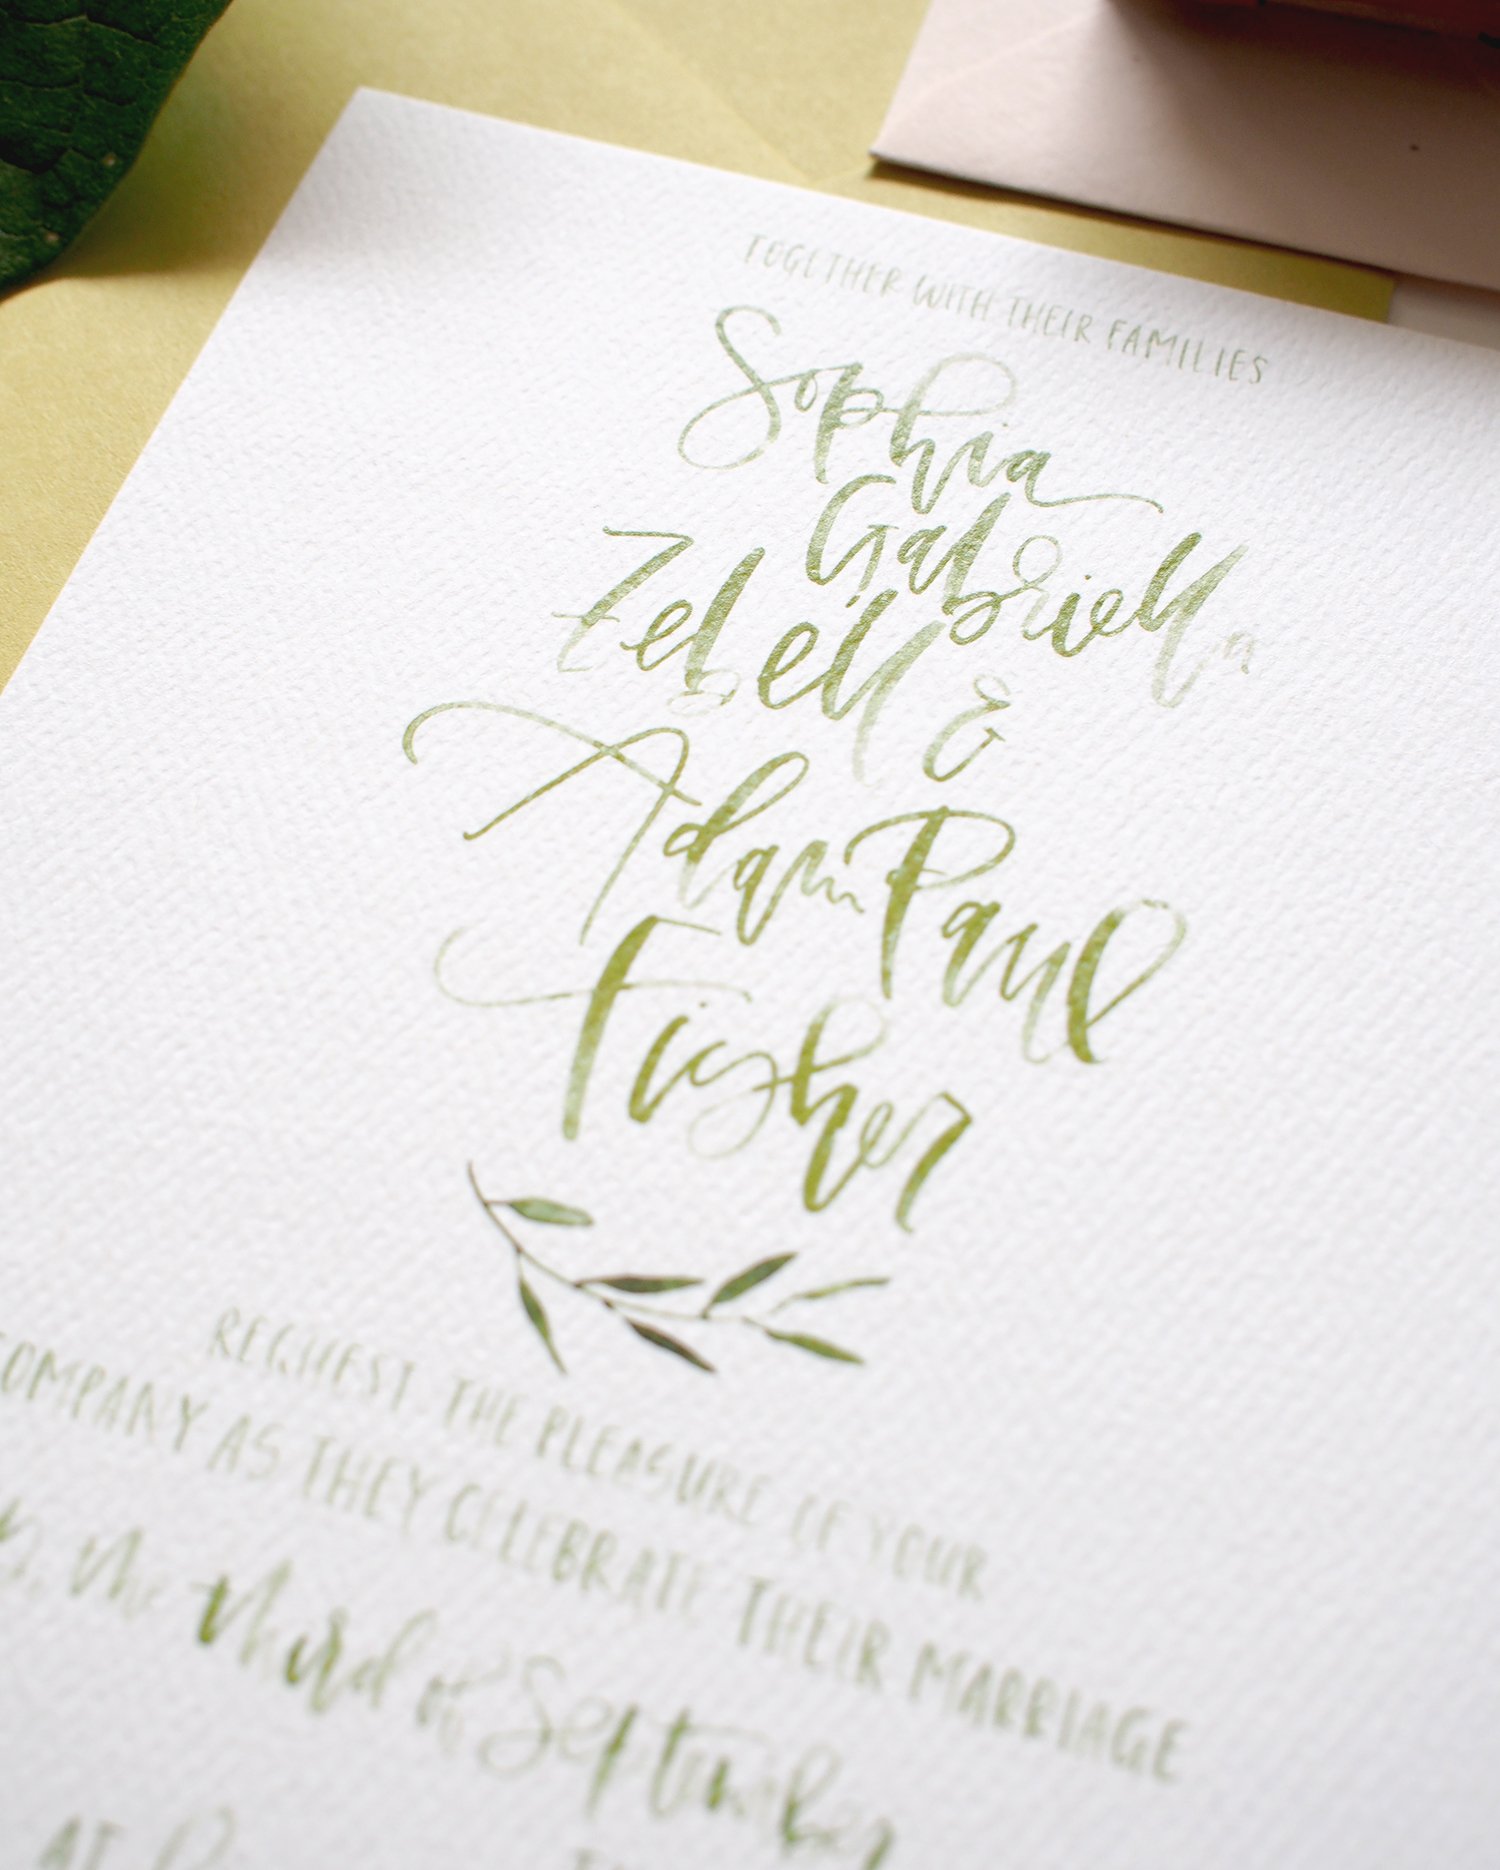 TOGETHER WITH THEIR FAMILIES
Sophia
Gabriella
Zebell &
Adam Paul
Fisher
REQUEST THE PLEASURE OF YOUR
COMPANY AS THEY CELEBRATE THEIR MARRIAGE
the third of September
AT